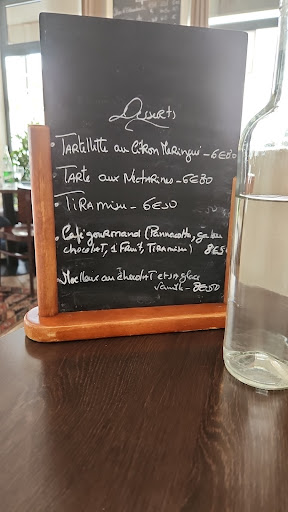 Desserts
• Tartelette au Citron Meringué - 6€80
• Tarte aux Nectarines - 6€80
• Tiramisu - 6€50
• Café gourmand (Pannacotta, gateau
chocolat, 1 Fruit, Tiramisu) 8€50
• Moelleux au chocolat et sa glace
vanille - 8€50